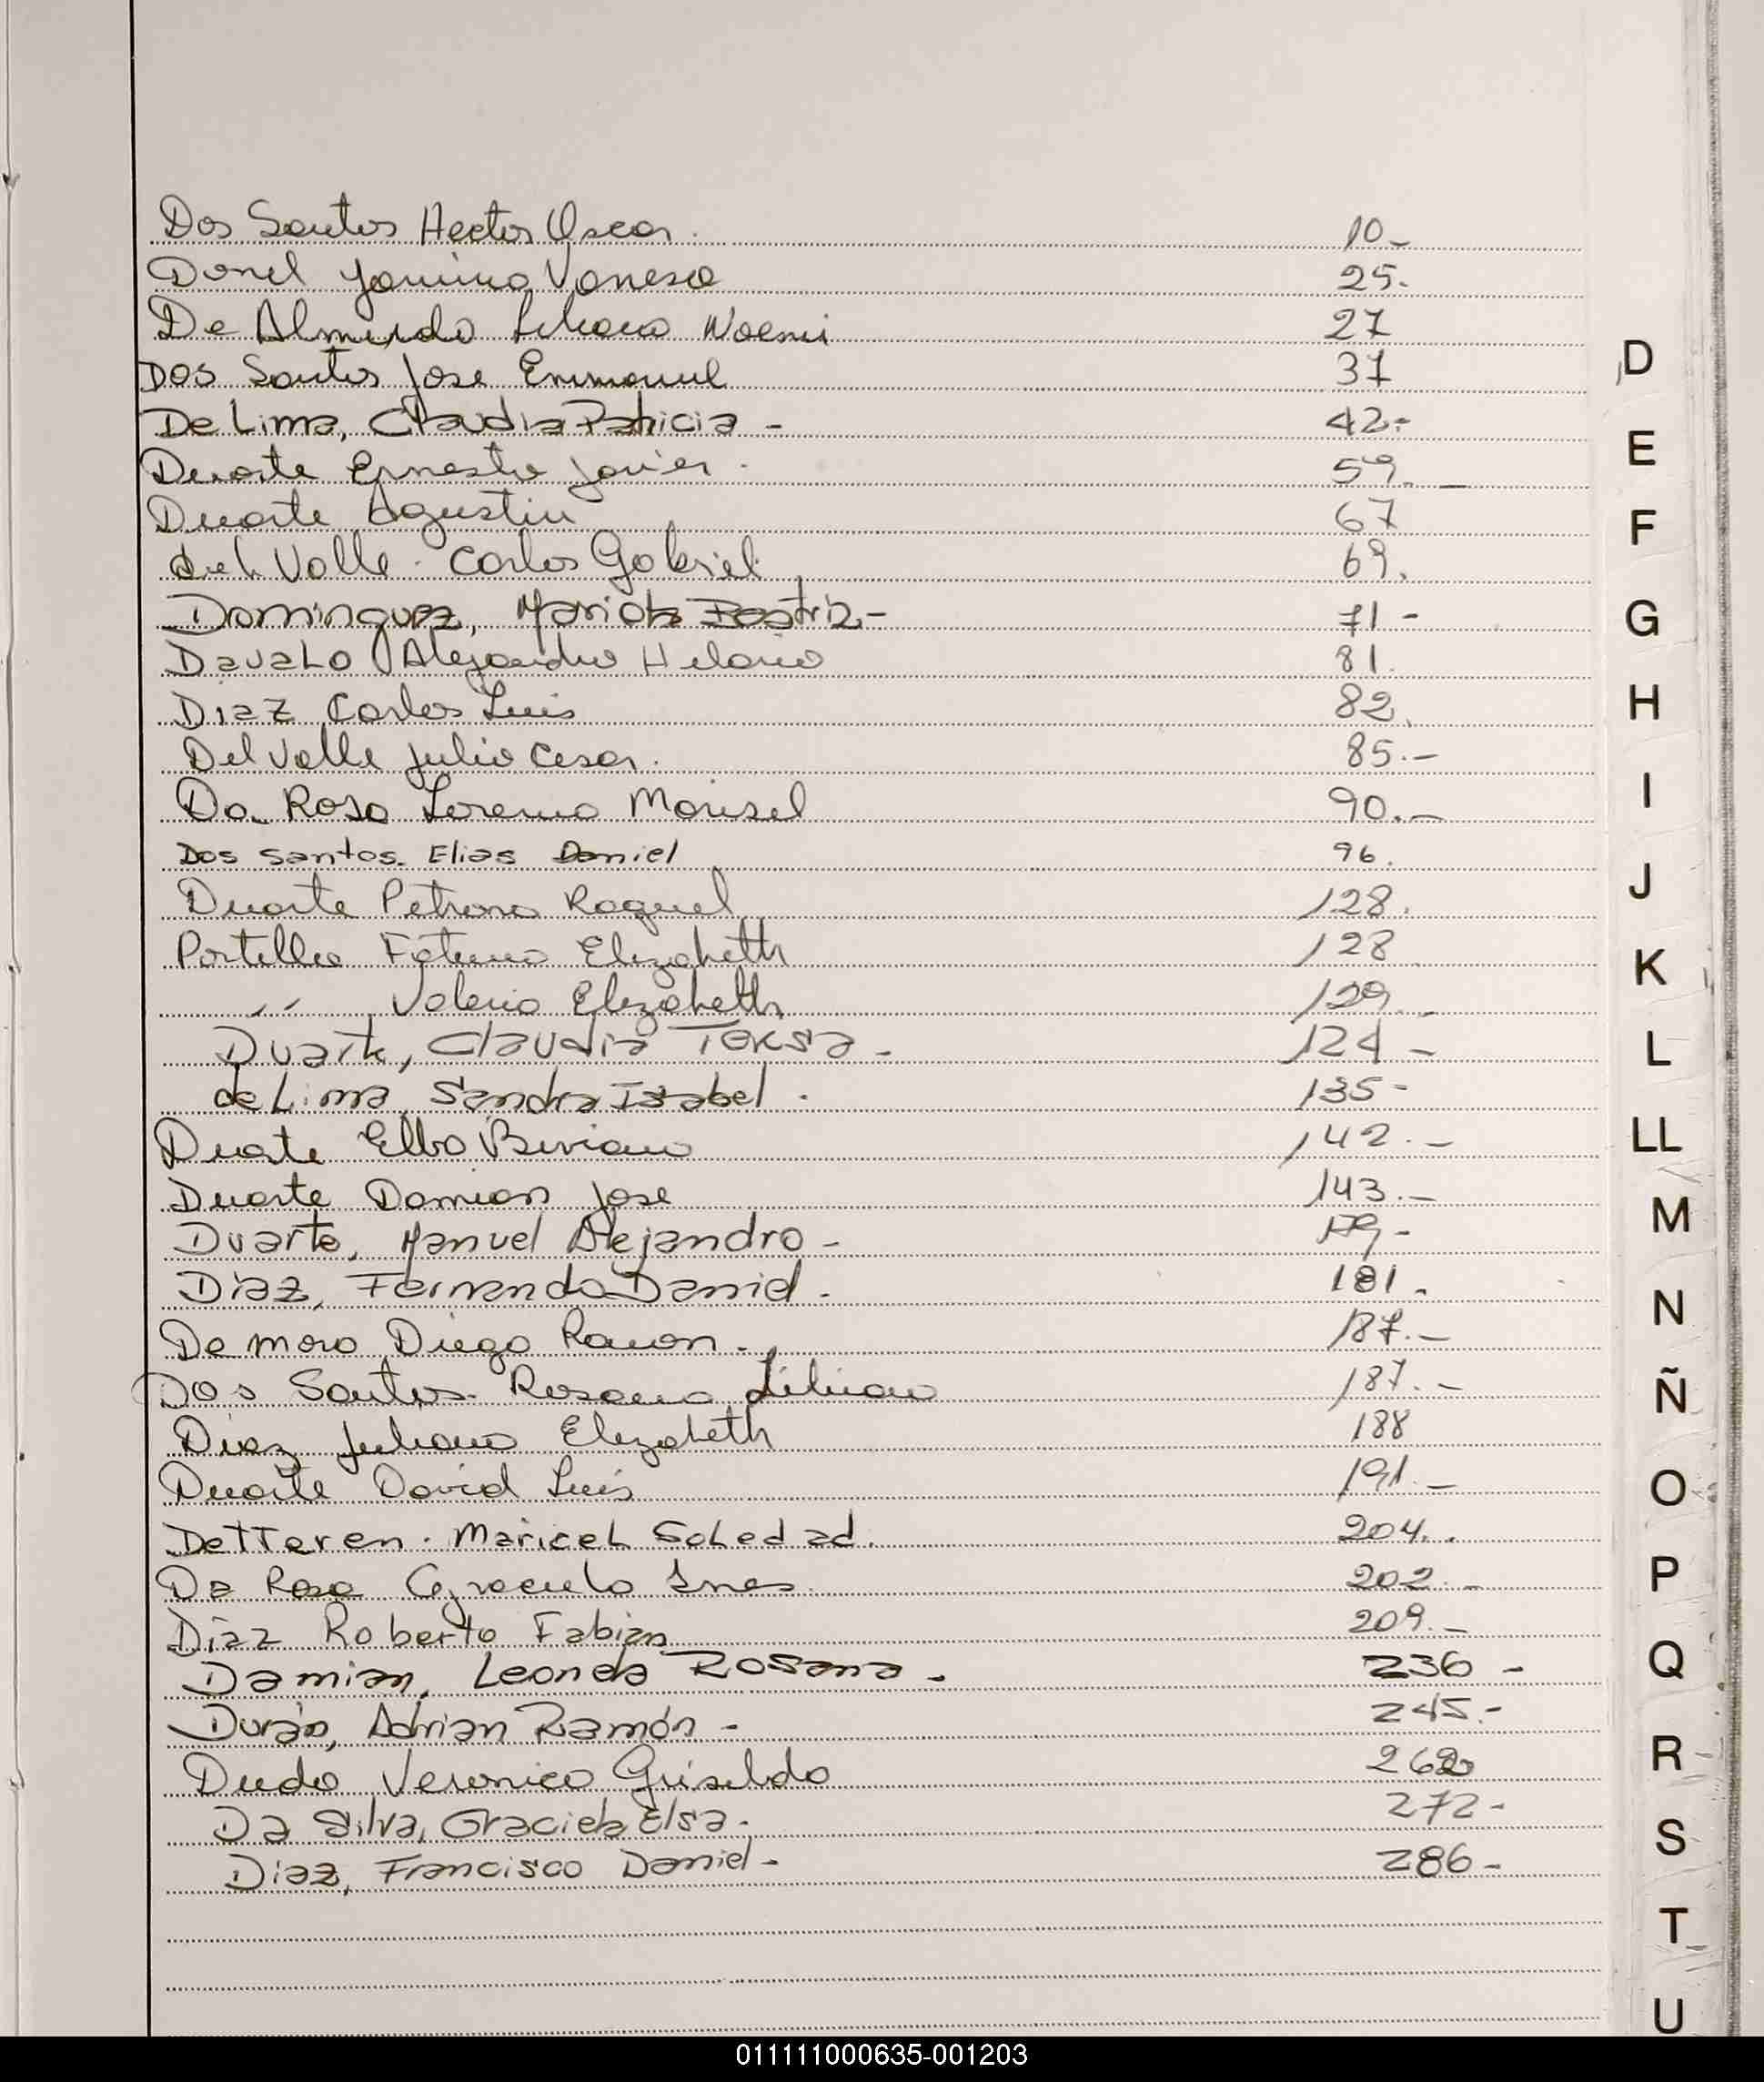 Dos Santos Hector Oscar. 10-
Donel Yanina Vanesa 25.
De Almeida Liliana Noemi 27
Dos Santos Jose Emmanuel 37
D
De Lima, Claudia Patricia - 42.-
Duarte Ernesto Javier. 59. -
E
Duarte Agustin 67
F
del Valle. Carlos Gabriel 69.
Dominguez, Mariola Beatriz - 71 -
G
Davalo Alejandro Hilario 81.
Diaz Carlos Luis 82.
H
Del Valle Julio Cesar. 85.-
Da Rosa Lorena Marisel 90.-
I
Dos santos. Elias Daniel 96.
Duarte Petrona Raquel 128.
J
Portillo Fatima Elizabeth 128
K
" Valeria Elizabeth 129. -
Duarte, Claudia Teresa - 124 -
L
de Lima, Sandra Isabel. 135-
Duarte Elba Viviana 142. -
LL
Duarte Damian Jose 143.-
M
Duarte, Manuel Alejandro - 179 -
Diaz, Fernando Daniel. 181.
N
De mora Diego Ramon. 187.-
Dos Santos. Rosana Liliana 187.-
Ñ
Diaz Juliana Elizabeth 188
Duarte David Luis 191.-
O
Detteren. Maricel Soledad. 204..
Da Rosa Graciela Ines 202.-
P
Díaz Roberto Fabian 209.-
Damian, Leonda Rosana. 236 -
Q
Durán, Adrian Ramón - 245.-
R
Duda Veronica Griselda
Da Silva, Graciela Elsa. 272-
S
Diaz, Francisco Daniel - 286-
T
U
011111000635-001203